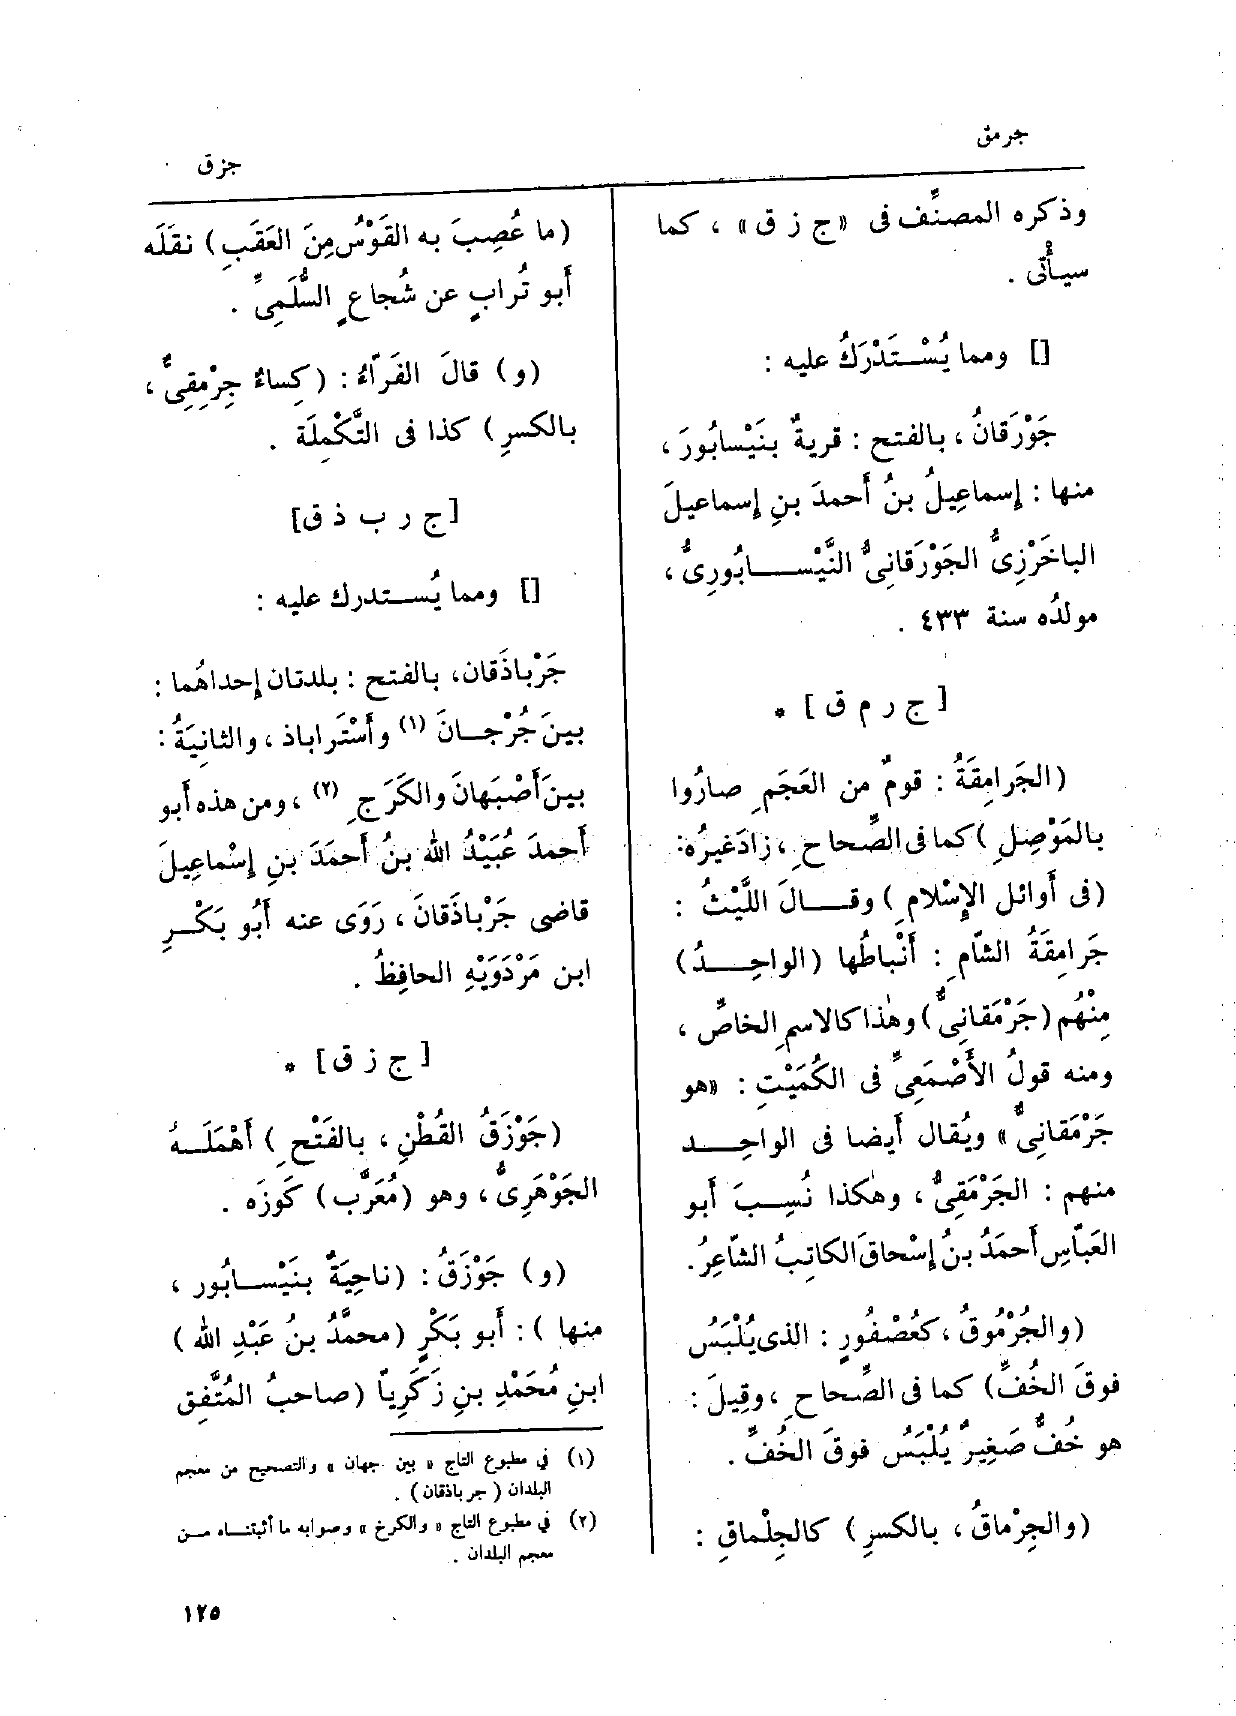 جرمق
جزق
وذكره المصنِّف فى «ج ز ق» ، كما
سيأْتى .
[] ومما يُسْتَدْرَكُ عليه :
جَوْرَقانُ ، بالفتح : قريةٌ بنَيْسابُورَ ،
منها : إسماعِيلُ بنُ أَحمدَ بنِ إسماعيلَ
الباخَرْزِىُّ الجَوْرَقانِىُّ النَّيْسابُورِىُّ ،
مولدُه سنة ٤٣٣ .
[ ج ر م ق ] *
(الجَرامِقَةُ : قومٌ من العَجَمِ صارُوا
بالمَوْصِلِ) كما فى الصِّحاحِ ، زادَ غيرُه:
(فى أوائل الإِسْلامِ) وقالَ اللَّيْثُ :
جَرامِقَةُ الشّامِ : أَنْباطُها (الواحِدُ)
مِنْهُم (جَرْمَقانِىٌّ) وهٰذا كالاسمِ الخاصِّ ،
ومنه قولُ الأَصْمَعِىِّ فى الكُمَيْتِ : «هو
جَرْمَقانِىٌّ» ويُقال أَيضا فى الواحِد
منهم : الجَرْمَقِىُّ ، وهٰكذا نُسِبَ أَبو
العَبّاسِ أَحمَدُ بنُ إِسْحاقَ الكاتِبُ الشّاعِرُ.
(والجُرْمُوقُ ، كعُصْفُورٍ : الذى يُلْبَسُ
فوقَ الخُفِّ) كما فى الصِّحاحِ ، وقِيلَ :
هو خُفٌّ صَغِيرٌ يُلْبَسُ فوقَ الخُفِّ .
(والجِرْماقُ ، بالكسرِ) كالجِلْماقِ :
(ما عُصِبَ به القَوْسُ مِنَ العَقَبِ) نقلَه
أَبو تُرابٍ عن شُجاعٍ السُّلَمِىِّ .
(و) قالَ الفَرّاءُ : (كِساءٌ جِرْمِقِىٌّ ،
بالكسرِ) كذا فى التَّكْمِلَة .
[ج ر ب ذ ق]
[] ومما يُستدرك عليه :
جَرْباذَقان، بالفتح : بلدتان إِحداهُما :
بينَ جُرْجانَ (١) وأَسْتَراباذ ، والثانِيَةُ :
بينَ أَصْبَهانَ والكَرَجِ (٢) ، ومن هذه أَبو
أَحمدَ عُبَيْدُ الله بنُ أَحمَدَ بنِ إِسْماعِيلَ
قاضى جَرْباذَقانَ ، رَوَى عنه أَبُو بَكْرِ
ابن مَرْدَوَيْهِ الحافِظُ .
[ ج ز ق ] *
(جَوْزَقُ القُطْنِ ، بالفَتْحِ) أَهْمَلَهُ
الجَوْهَرِىُّ ، وهو (مُعَرَّب) كَوزَه .
(و) جَوْزَقُ : (ناحِيَةٌ بنَيْسابُور ،
منها ) : أَبو بَكْرٍ (محمَّدُ بنُ عَبْدِ الله )
ابنِ مُحَمْدِ بنِ زَكَرِيّا (صاحبُ المُتَّفِق
(١) في مطبوع التاج « بين جهان » والتصحيح من معجم
البلدان ( جرباذقان ) .
(٢) في مطبوع التاج « والكرخ » وصوابه ما أثبتناه من
معجم البلدان .
١٢٥